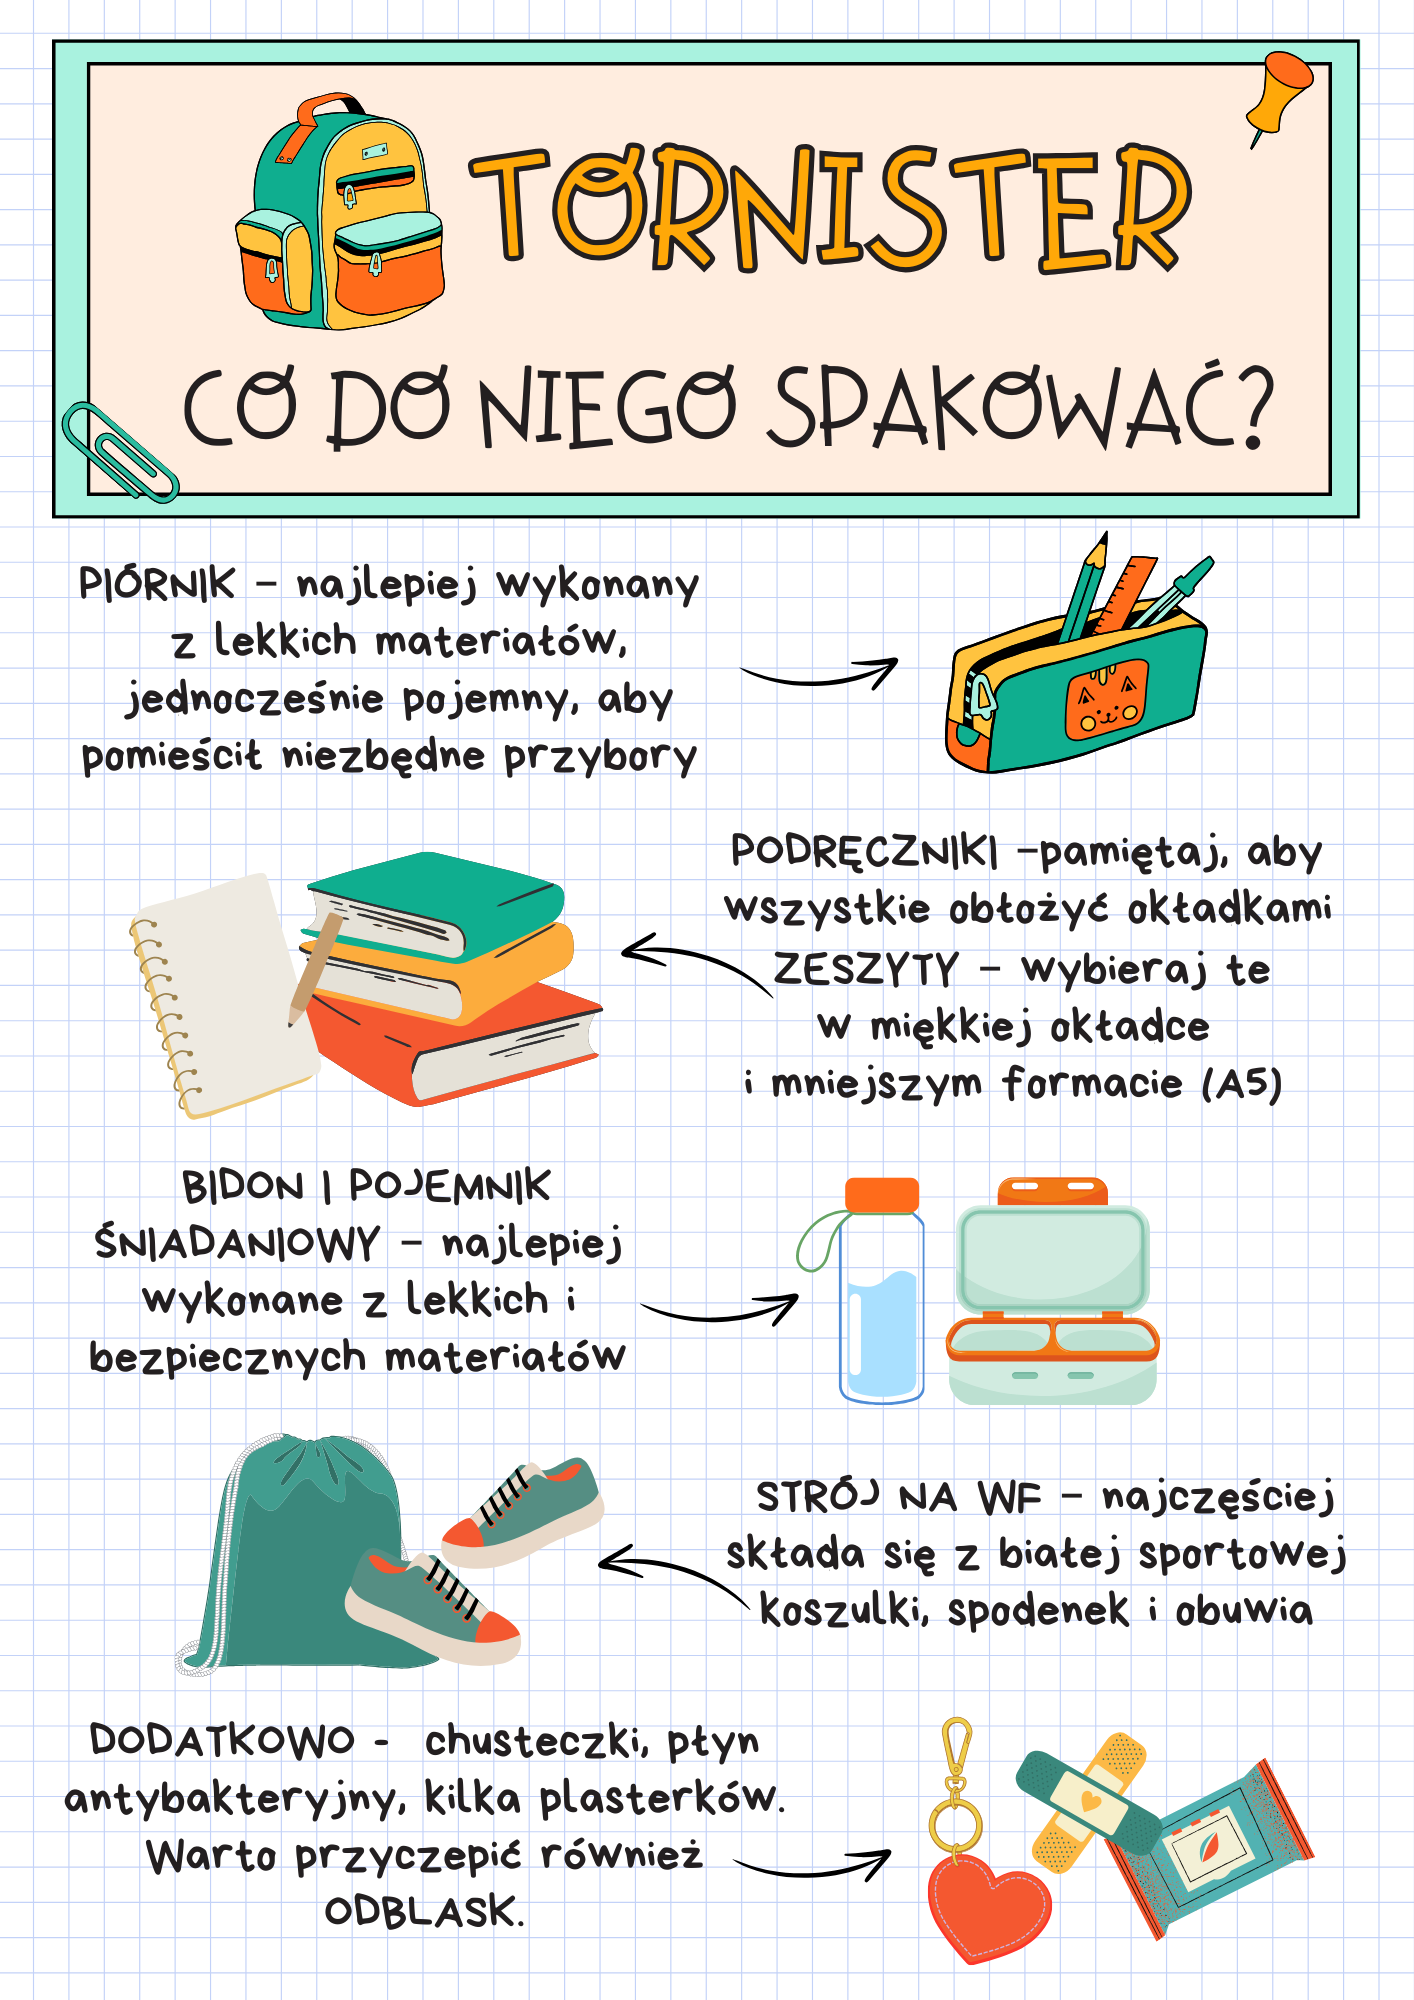 TORNISTER
CO DO NIEGO SPAKOWAĆ?
PIÓRNIK – najlepiej wykonany
z lekkich materiałów,
jednocześnie pojemny, aby
pomieścił niezbędne przybory
PODRĘCZNIKI –pamiętaj, aby
wszystkie obłożyć okładkami
ZESZYTY – wybieraj te
w miękkiej okładce
i mniejszym formacie (A5)
BIDON I POJEMNIK
ŚNIADANIOWY – najlepiej
wykonane z lekkich i
bezpiecznych materiałów
STRÓJ NA WF – najczęściej
składa się z białej sportowej
koszulki, spodenek i obuwia
DODATKOWO - chusteczki, płyn
antybakteryjny, kilka plasterków.
Warto przyczepić również
ODBLASK.